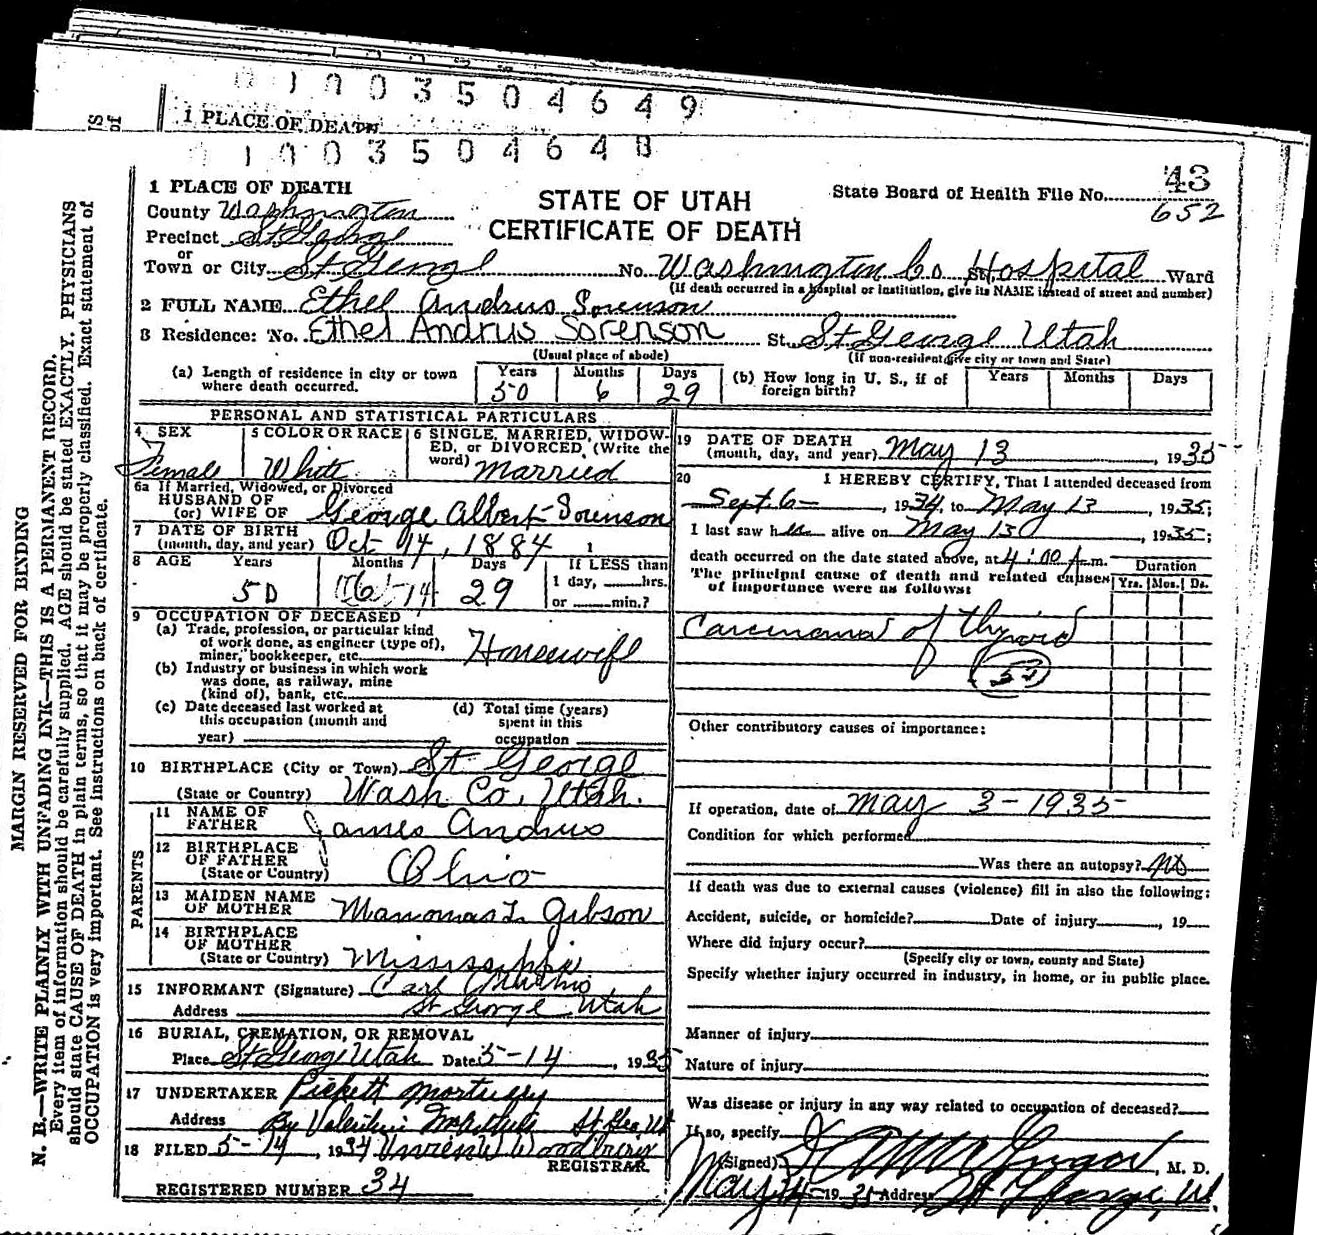 0 1 0 0 3 5 0 4 6 4 9
1 PLACE OF DEATH
0 1 0 0 3 5 0 4 6 4 8
43
1 PLACE OF DEATH
STATE OF UTAH
CERTIFICATE OF DEATH
State Board of Health File No.
652
County Washington
Precinct St George
or
Town or City St George No. Washington Co Hospital St. Ward
(If death occurred in a hospital or institution, give its NAME instead of street and number)
2 FULL NAME Ethel Andrus Sorenson
3 Residence: No. Ethel Andrus Sorenson St. St George Utah
(Usual place of abode) (If non-resident give city or town and State)
(a) Length of residence in city or town where death occurred. Years 50 Months 6 Days 29
(b) How long in U. S., if of foreign birth? Years Months Days
PERSONAL AND STATISTICAL PARTICULARS
4 SEX Female
5 COLOR OR RACE White
6 SINGLE, MARRIED, WIDOWED, or DIVORCED, (Write the word) Married
6a If Married, Widowed, or Divorced
HUSBAND OF
(or) WIFE OF George Albert Sorenson
7 DATE OF BIRTH
(month, day, and year) Oct 14, 1884
8 AGE Years 50 Months 6 Days 29
If LESS than
1 day, hrs.
or min.?
9 OCCUPATION OF DECEASED
(a) Trade, profession, or particular kind
of work done, as engineer (type of),
miner, bookkeeper, etc. Housewife
(b) Industry or business in which work
was done, as railway, mine
(kind of), bank, etc.
(c) Date deceased last worked at
this occupation (month and
year)
(d) Total time (years)
spent in this
occupation
10 BIRTHPLACE (City or Town) St George
(State or Country) Wash Co. Utah.
PARENTS
11 NAME OF
FATHER James Andrus
12 BIRTHPLACE
OF FATHER
(State or Country) Ohio
13 MAIDEN NAME
OF MOTHER Manomas L Gibson
14 BIRTHPLACE
OF MOTHER
(State or Country) Mississippi
15 INFORMANT (Signature) Carl
Address St George Utah
16 BURIAL, CREMATION, OR REMOVAL
Place St George Utah Date 5-14, 1935
17 UNDERTAKER Pickett Mortuary
Address By St Geo, Ut
18 FILED 5-14, 1934 Woodbury
REGISTRAR
REGISTERED NUMBER 34
19 DATE OF DEATH
(month, day, and year) May 13, 1935
20 I HEREBY CERTIFY, That I attended deceased from
Sept 6-, 1934, to May 13, 1935;
I last saw her alive on May 13, 1935;
death occurred on the date stated above, at 4:00 p.m.
The principal cause of death and related causes
of importance were as follows:
Duration
Yrs. Mos. Ds.
Carcinoma of thyroid
53
Other contributory causes of importance:
If operation, date of May 3-1935
Condition for which performed
Was there an autopsy? No
If death was due to external causes (violence) fill in also the following:
Accident, suicide, or homicide? Date of injury, 19
Where did injury occur?
(Specify city or town, county and State)
Specify whether injury occurred in industry, in home, or in public place.
Manner of injury
Nature of injury
Was disease or injury in any way related to occupation of deceased?
If so, specify
(Signed) McGregor, M. D.
May 14-1935 Address St George, Ut
MARGIN RESERVED FOR BINDING
N. B.—WRITE PLAINLY WITH UNFADING INK—THIS IS A PERMANENT RECORD.
Every item of information should be carefully supplied. AGE should be stated EXACTLY. PHYSICIANS
should state CAUSE OF DEATH in plain terms, so that it may be properly classified. Exact statement of
OCCUPATION is very important. See instructions on back of certificate.